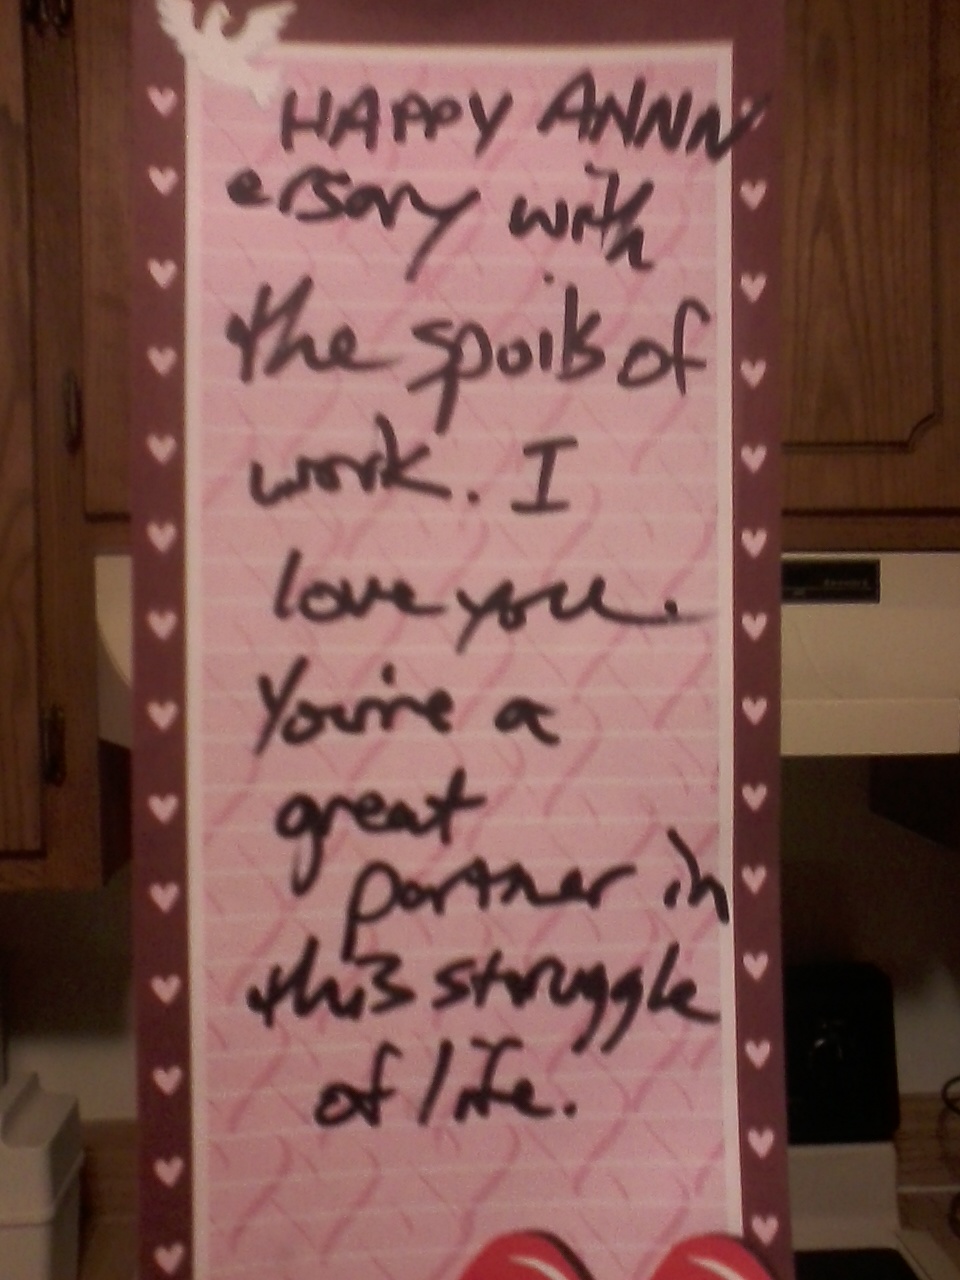 HAPPY ANNN
ersary with
the spoils of
work. I
love you.
You're a
great
partner in
this struggle
of life.